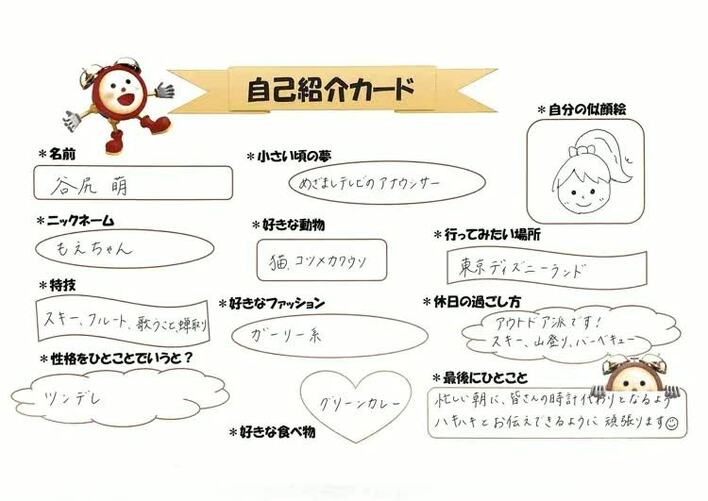 自己紹介カード
＊名前
谷尻 萌
＊ニックネーム
もえちゃん
＊特技
スキー、フルート、歌うこと、蝉取り
＊性格をひとことでいうと？
ツンデレ
＊小さい頃の夢
めざましテレビのアナウンサー
＊好きな動物
猫、コツメカワウソ
＊好きなファッション
ガーリー系
グリーンカレー
＊好きな食べ物
＊自分の似顔絵
＊行ってみたい場所
東京ディズニーランド
＊休日の過ごし方
アウトドア派です！
スキー、山登り、バーベキュー
＊最後にひとこと
忙しい朝に、皆さんの時計代わりとなるよう
ハキハキとお伝えできるように頑張ります☺